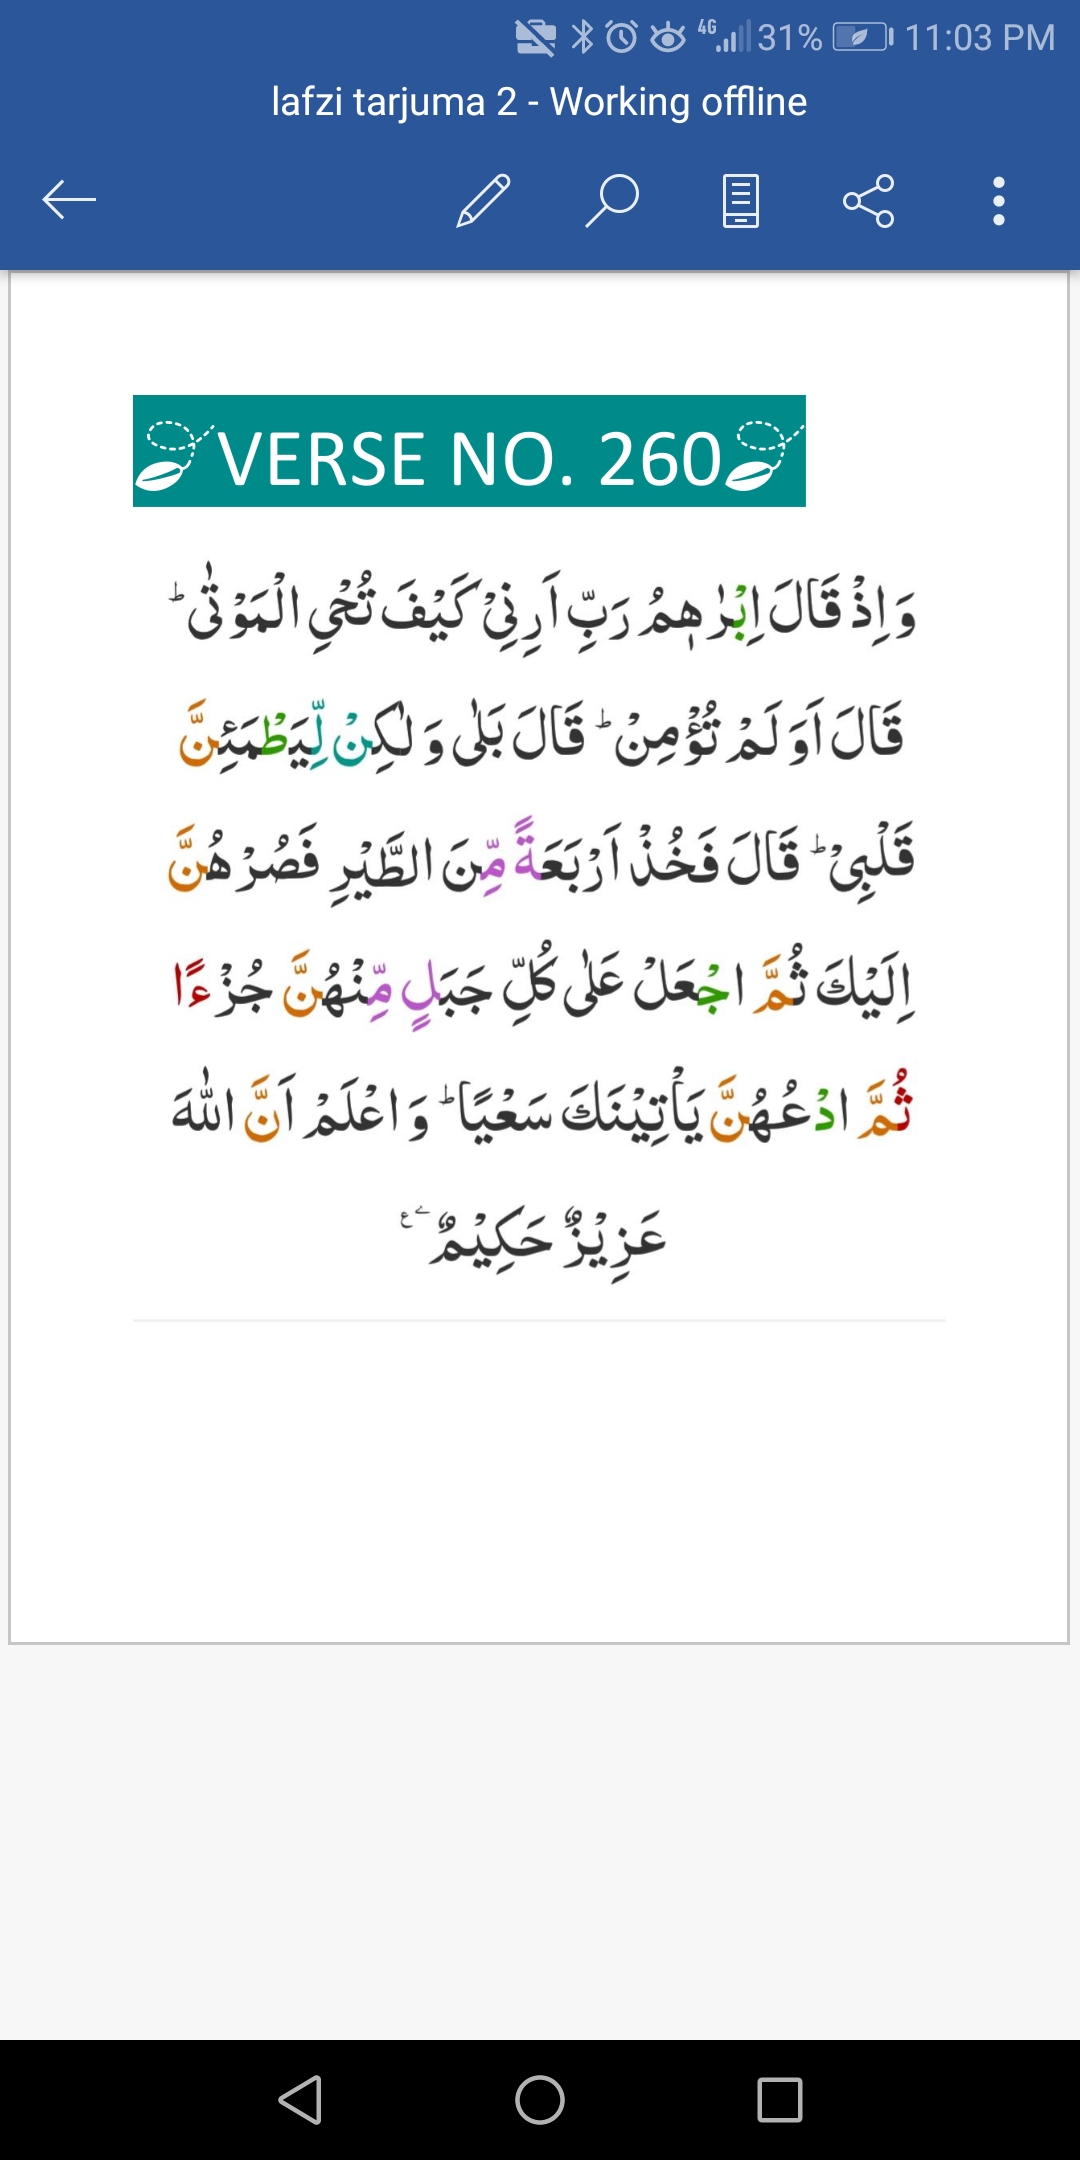 4G 31% 11:03 PM
lafzi tarjuma 2 - Working offline
VERSE NO. 260
وَ اِذْ قَالَ اِبْرٰهٖمُ رَبِّ اَرِنِیْ كَیْفَ تُحْیِ الْمَوْتٰیؕ
قَالَ اَوَ لَمْ تُؤْمِنْؕ قَالَ بَلٰی وَ لٰكِنْ لِّیَطْمَئِنَّ
قَلْبِیْؕ قَالَ فَخُذْ اَرْبَعَةً مِّنَ الطَّیْرِ فَصُرْهُنَّ
اِلَیْكَ ثُمَّ اجْعَلْ عَلٰی كُلِّ جَبَلٍ مِّنْهُنَّ جُزْءًا
ثُمَّ ادْعُهُنَّ یَاْتِیْنَكَ سَعْیًاؕ وَ اعْلَمْ اَنَّ اللّٰهَ
عَزِیْزٌ حَكِیْمٌ